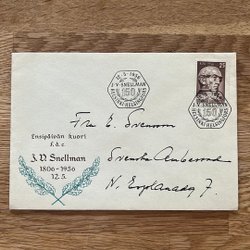 12.5.1956
J.V. SNELLMAN
150
HELSINKI-HELSINGFORS
Ensipäivän kuori
f.d.c.
J.V. Snellman
1806-1956
12.5.
Fru E. Svensson
Svenska Ambassad
N. Esplanadg 7.